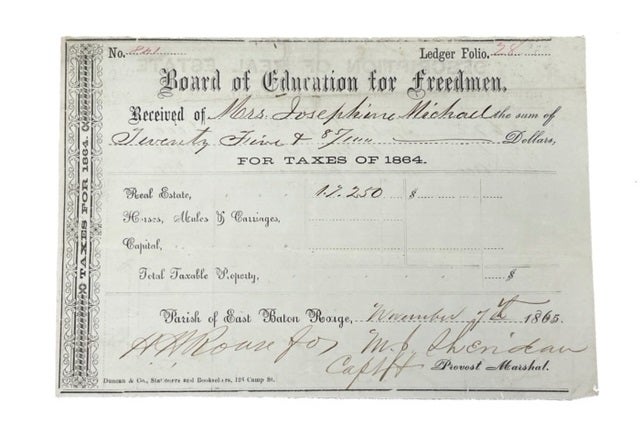 No.
Ledger Folio. 28
Board of Education for Freedmen,
Received of Mrs. Josephine Michael the sum of
Twenty Five & 87/100 Dollars,
FOR TAXES OF 1864.
Real Estate, 17.250 $
Horses, Mules & Carriages,
Capital,
Total Taxable Property, $
Parish of East Baton Rouge, November 7th 1865.
H N Rouse for M. J. Sheridan
Capt Provost Marshal.
Duncan & Co., Stationers and Booksellers, 124 Camp St.
TAXES FOR 1864.